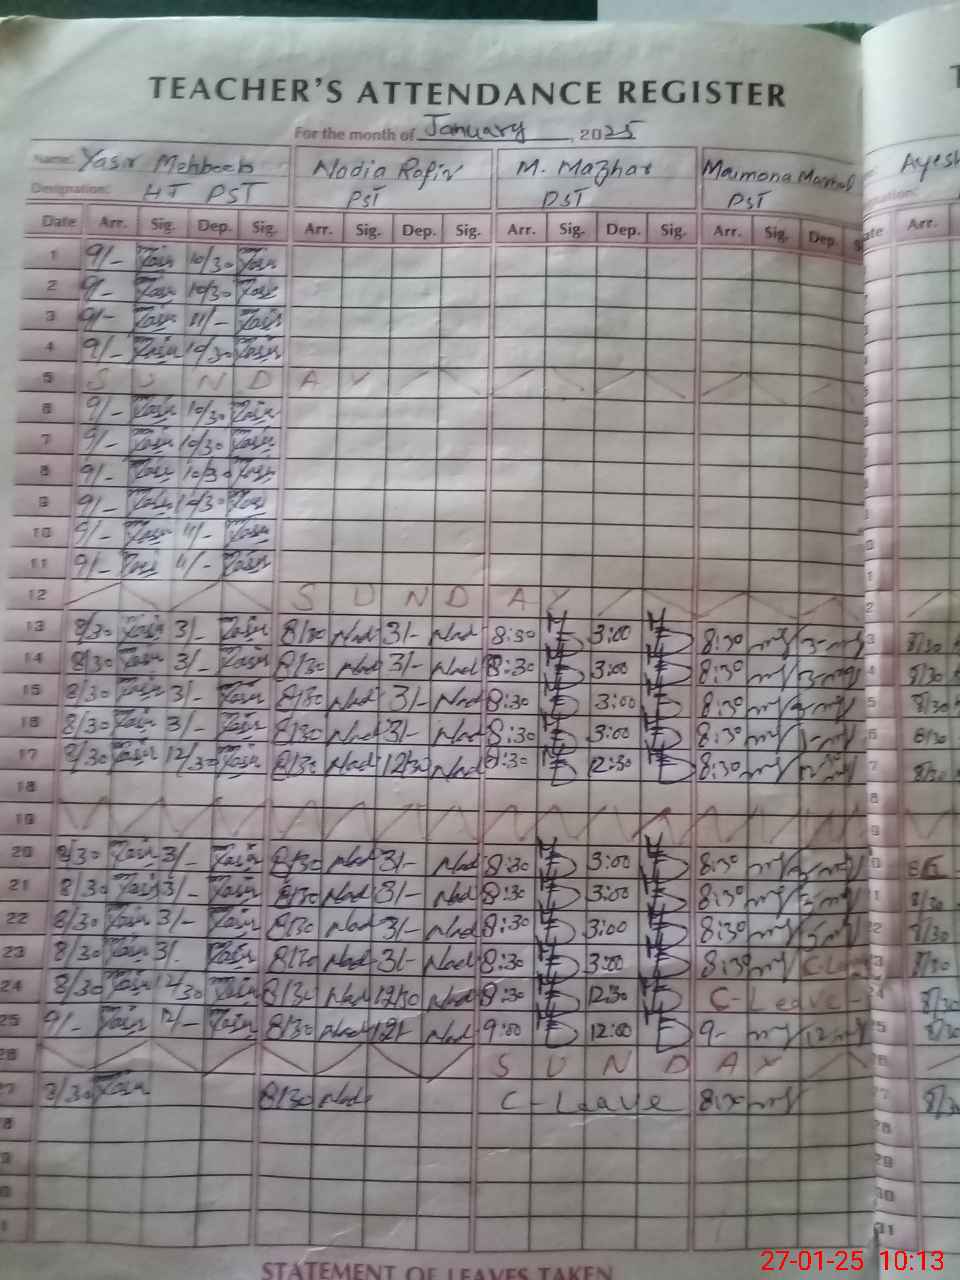 TEACHER'S ATTENDANCE REGISTER
For the month of January, 2025
Name: Yasir Mehboob Nadia Rafiq M. Mazhar Maimona Ayesh
Designation: HT PST PST PST PST
Date Arr. Sig. Dep. Sig. Arr. Sig. Dep. Sig. Arr. Sig. Dep. Sig. Arr. Sig. Dep. S ate Arr.
1 9/- Yasir 10/30 Yasir
2 9/- Yasir 10/30 Yasir
3 9/- Yasir 11/- Yasir
4 9/- Yasir 10/30 Yasir
5 S U N D A Y
6 9/- Yasir 10/30 Yasir
7 9/- Yasir 10/30 Yasir
8 9/- Yasir 10/30 Yasir
9 9/- Yasir 10/30 Yasir
10 9/- Yasir 11/- Yasir
11 9/- Yasir 11/- Yasir
12 S U N D A Y
13 8/30 Yasir 3/- Yasir 8/30 Nad 3/- Nad 8:30 3:00 8:30 3 8/30
14 8/30 Yasir 3/- Yasir 8/30 Nad 3/- Nad 8:30 3:00 8:30 4 8/30
15 8/30 Yasir 3/- Yasir 8/30 Nad 3/- Nad 8:30 3:00 8:30 5 8/30
16 8/30 Yasir 3/- Yasir 8/30 Nad 3/- Nad 8:30 3:00 8:30 6 8/30
17 8/30 Yasir 12/30 Yasir 8/30 Nad 12/30 Nad 8:30 12:30 8:30 7 8/30
18 8
19 9
20 8/30 Yasir 3/- Yasir 8/30 Nad 3/- Nad 8:30 3:00 8:30 0
21 8/30 Yasir 3/- Yasir 8/30 Nad 3/- Nad 8:30 3:00 8:30 1 8/30
22 8/30 Yasir 3/- Yasir 8/30 Nad 3/- Nad 8:30 3:00 8:30 2 8/30
23 8/30 Yasir 3/. Yasir 8/30 Nad 3/- Nad 8:30 3:00 8:30 C-Leave 3 8/30
24 8/30 Yasir 12/30 Yasir 8/30 Nad 12/30 Nad 8:30 12:30 C-Leave- 24 8/30
25 9/- Yasir 12/- Yasir 8/30 Nad 12/- Nad 9:00 12:00 9- 12 25 8/30
26 S U N D A Y 26
27 8/30 Yasir 8/30 Nad C-Leave 8:30 7 8/30
8 28
9 29
0 30
1 31
STATEMENT OF LEAVES TAKEN
27-01-25 10:13